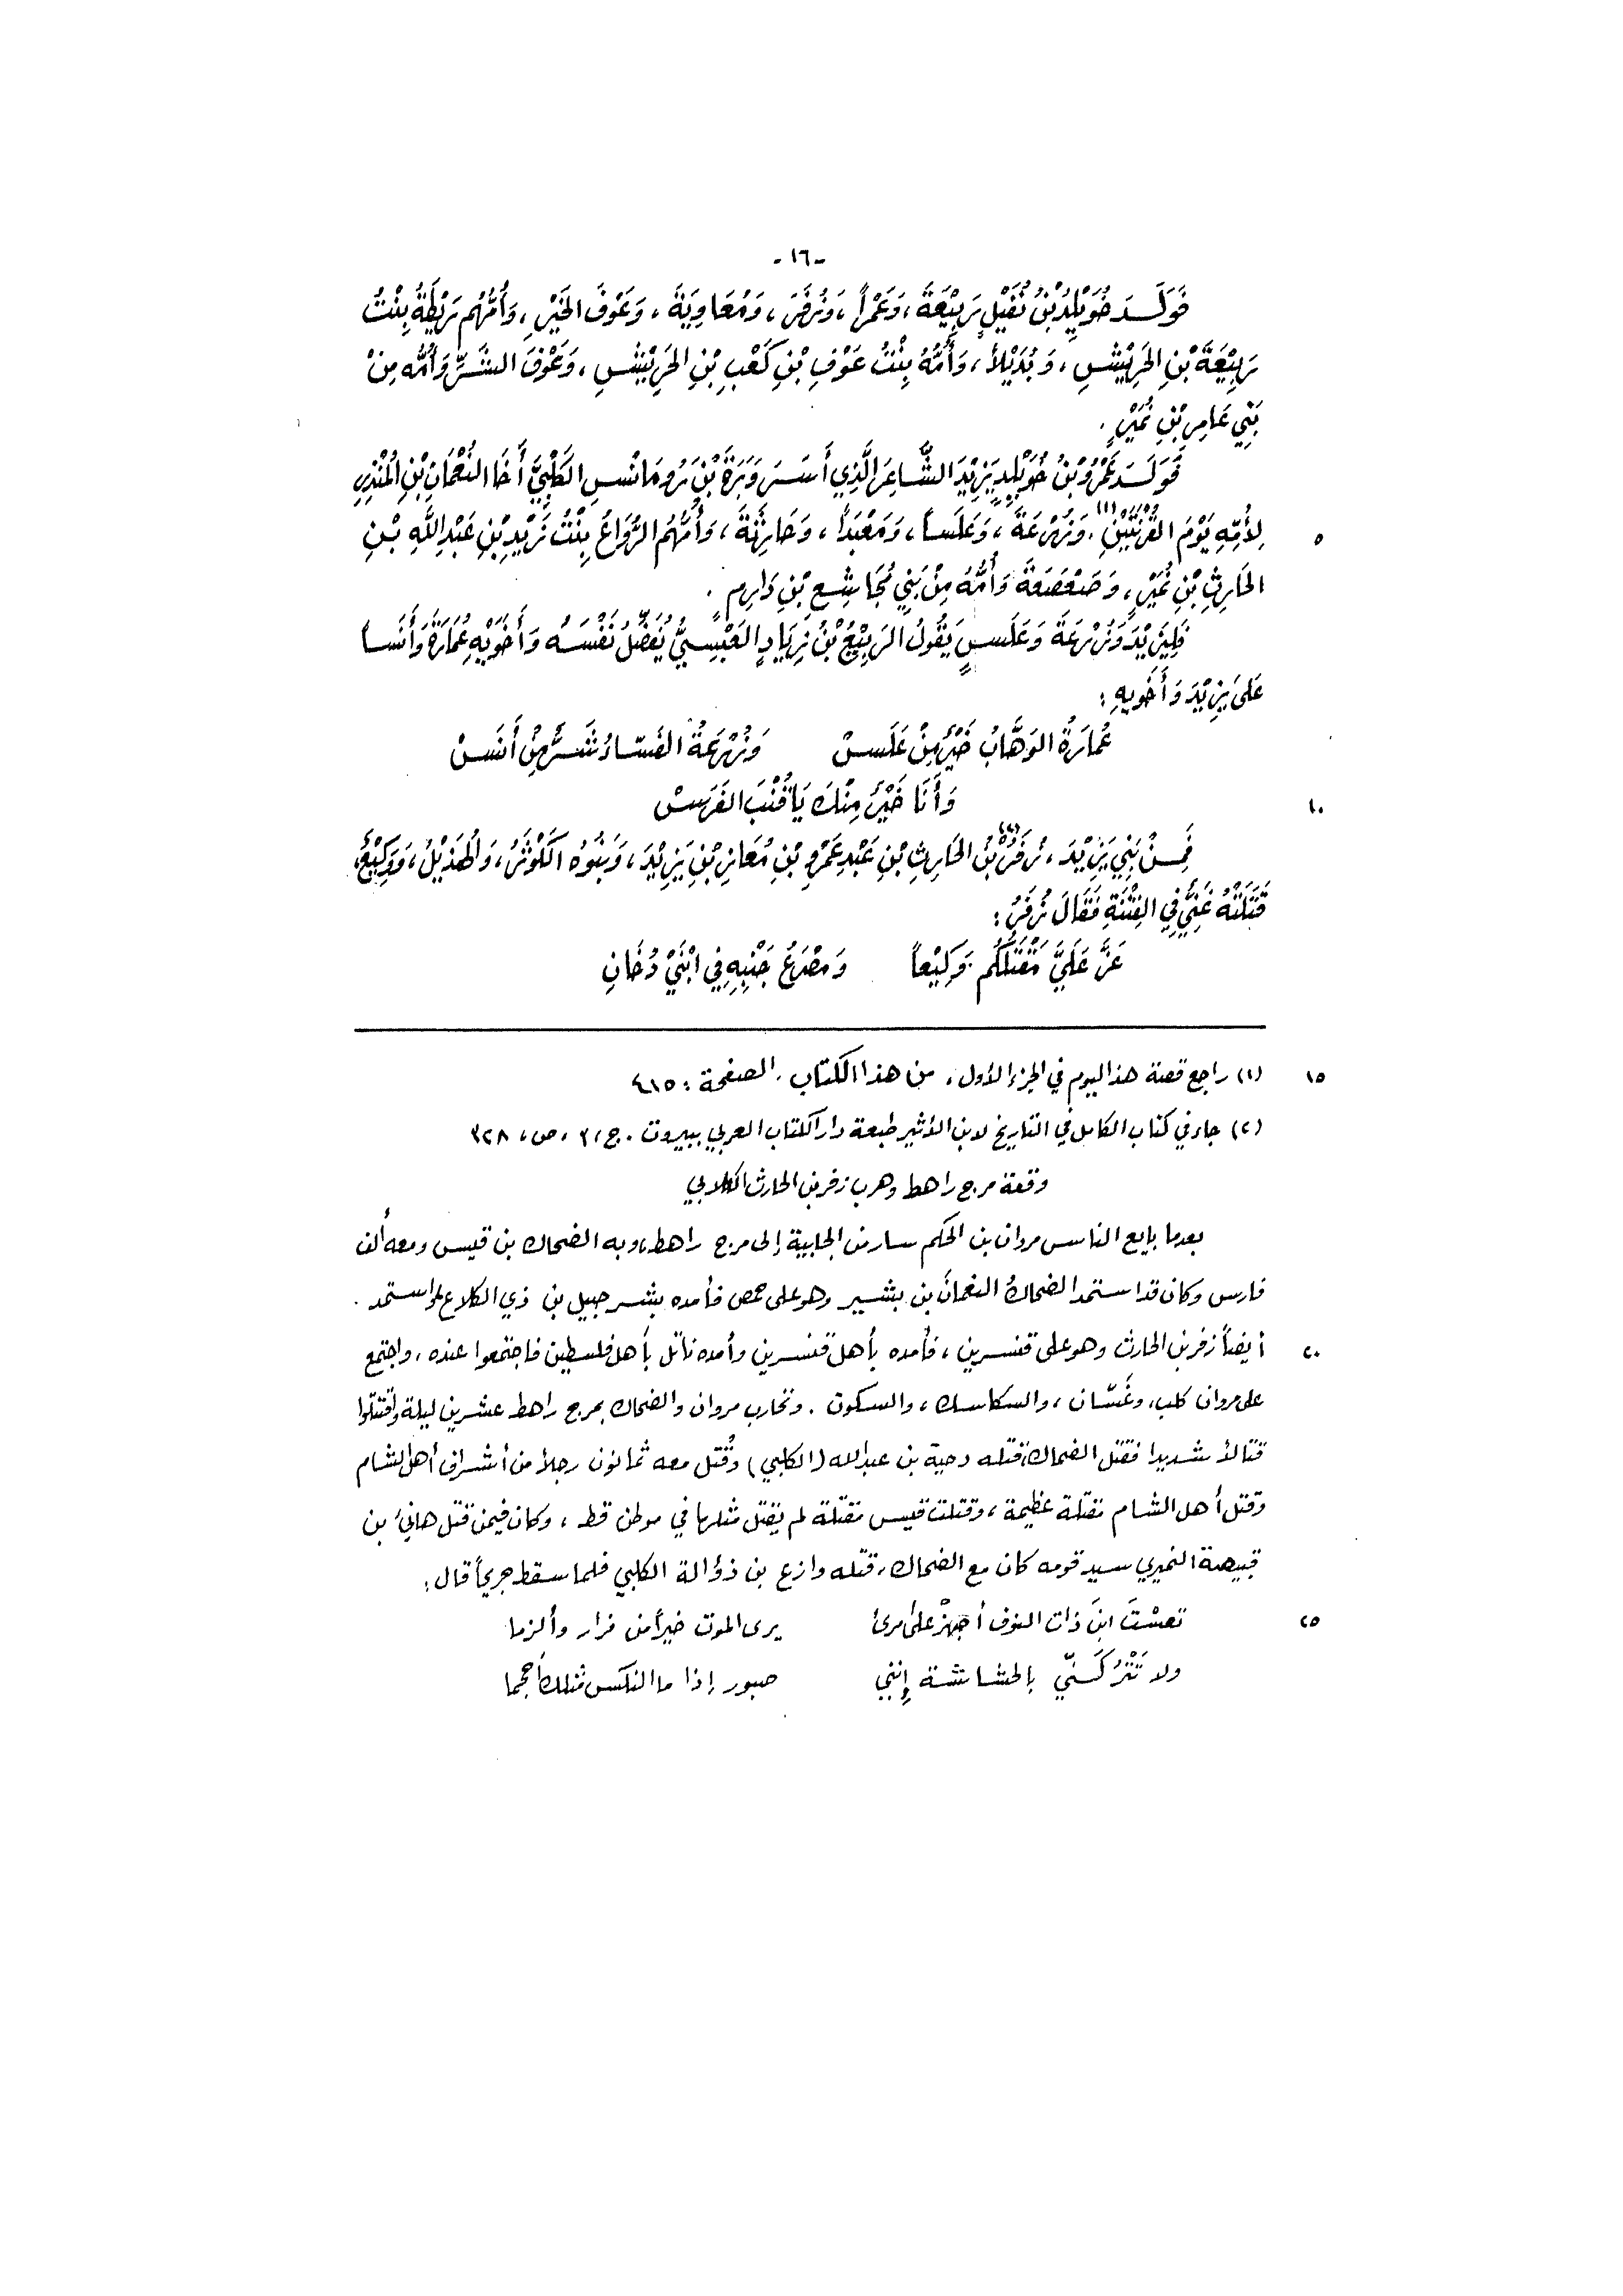 -١٦-
فَوَلَـدَ خُوَيْلِدُ بْنُ نُفَيْلٍ رَبِيْعَةَ، وَعَمْراً، وَزُفَرَ، وَمُعَاوِيَةَ، وَعَوْفَ الخَيْرِ، وَأُمُّهُم رَيْطَةُ بِنْتُ
رَبِيْعَةَ بْنِ الحَرِيْشِ، وَبُدَيْلاً، وَأُمُّهُ بِنْتُ عَوْفِ بْنِ كَعْبِ بْنِ الحَرِيْشِ، وَعَوْفَ الشَّرِّ وَأُمُّه مِنْ
بَنِي عَامِرِ بْنِ نُمَيْرٍ.
فَوَلَـدَ عَمْرُو بْنُ خُوَيْلِدٍ يَزِيْدَ الشَّاعِرَ الَّذِي أَسَـرَ وَبَرَةَ بْنَ رُومَانْسِ الكَلْبِيَّ أَخَا النُّعْمَانِ بْنِ الْمُنْذِرِ
٥ لِأُمِّهِ يَوْمَ القُرْنَتَيْنِ (١)، وَزُرْعَةَ، وَعَلَسـاً، وَمَعْبَداً، وَحَارِثَةَ، وَأُمُّهُم الرُّوَاعُ بِنْتُ زَيْدِ بْنِ عَبْدِ اللَّهِ بْنِ
الحَارِثِ بْنِ نُمَيْرٍ، وَصَعْصَعَةَ وَأُمُّهُ مِنْ بَنِي مُجَاشِعِ بْنِ دَارِمٍ.
فَلِيَزِيْدَ وَزُرْعَةَ وَعَلَسٍ يَقُولُ الرَبِيْعُ بْنُ زِيَادٍ العَبْسِـيُّ يُفَضِّلُ نَفْسَـهُ وَأَخَوَيْهِ عُمَارَةَ وَأَنَسـاً
عَلَى يَزِيْدَ وَأَخَوَيهِ:
عُمَارَةُ الوَهَّابُ خَيْرٌ مِنْ عَلَسْ وَزُرْعَةُ الفَسّاءُ شَـرٌّ مِنْ أَنَسْ
١٠ وَأَنَا خَيْرٌ مِنْكَ يَا قُنْبَ الفَرَسْ
فَمِـنْ بَنِي يَزِيْدَ، زُفَرُ (٢) بْنُ الحَارِثِ بْنِ عَبْدِ عَمْرِو بْنِ مُعَازِ بْنِ يَزِيْدَ، وَبَنُوه الكَوْثَرُ، وَالْهُذَيْلُ، وَوَكِيْعٌ،
قَتَلَتْهُ غَنِيٌّ فِي الفِتْنَةِ فَقَالَ زُفَرُ:
عَزَّ عَلَيَّ مَقْتَلُكُم وَكِيْعاً وَمَصْرَعُ جَنْبِهِ فِي ابْنَيْ دُخَانِ
١٥ (١) راجع قصة هذا اليوم في الجزء الأول، من هذا الكتاب. الصفحة: ٤١٥
(٢) جاء في كتاب الكامل في التاريخ لابن الأثير طبعة دار الكتاب العربي ببيروت. ج، ٣، ص، ٣٢٨
وقعة مرج راهط وهرب زفر بن الحارث الكلابي
بعدما بايع الناس مروان بن الحكم سار من الجابية إلى مرج راهط، وبه الضحاك بن قيس ومعه ألف
فارس وكان قد استمد الضحاكُ النعمانَ بن بشير وهو على حمص فأمده بشرحبيل بن ذي الكلاع واستمد.
٢٠ أيضاً زفر بن الحارث وهو على قنسرين، فأمده بأهل قنسرين وأمده ناتل بأهل فلسطين فاجتمعوا عنده، واجتمع
على مروان كلب، وغَسّان، والسكاسك، والسكون. وتحارب مروان والضحاك بمرج راهط عشرين ليلة واقتتلوا
قتالاً شديدا فقتل الضحاك، قتله دحية بن عبد الله (الكلبي) وقُتل معه ثمانون رجلاً من أشراف أهل الشام
وقتل أهل الشام مقتلة عظيمة، وقتلت قيس مقتلة لم يقتل مثلها في موطن قط، وكان فيمن قتل هانئ بن
قبيصة النميري سيد قومه كان مع الضحاك، قتله وازع بن ذؤالة الكلبي فلما سقط جريحاً قال:
٢٥ تعسْتَ ابنَ ذات النوف أجهزْ على امرئ يرى الموت خيراً من فرار وألزما
ولا تَتْرُكَنّي بالحشاشة إنني صبور إذا ما النكس مثلك أحجما